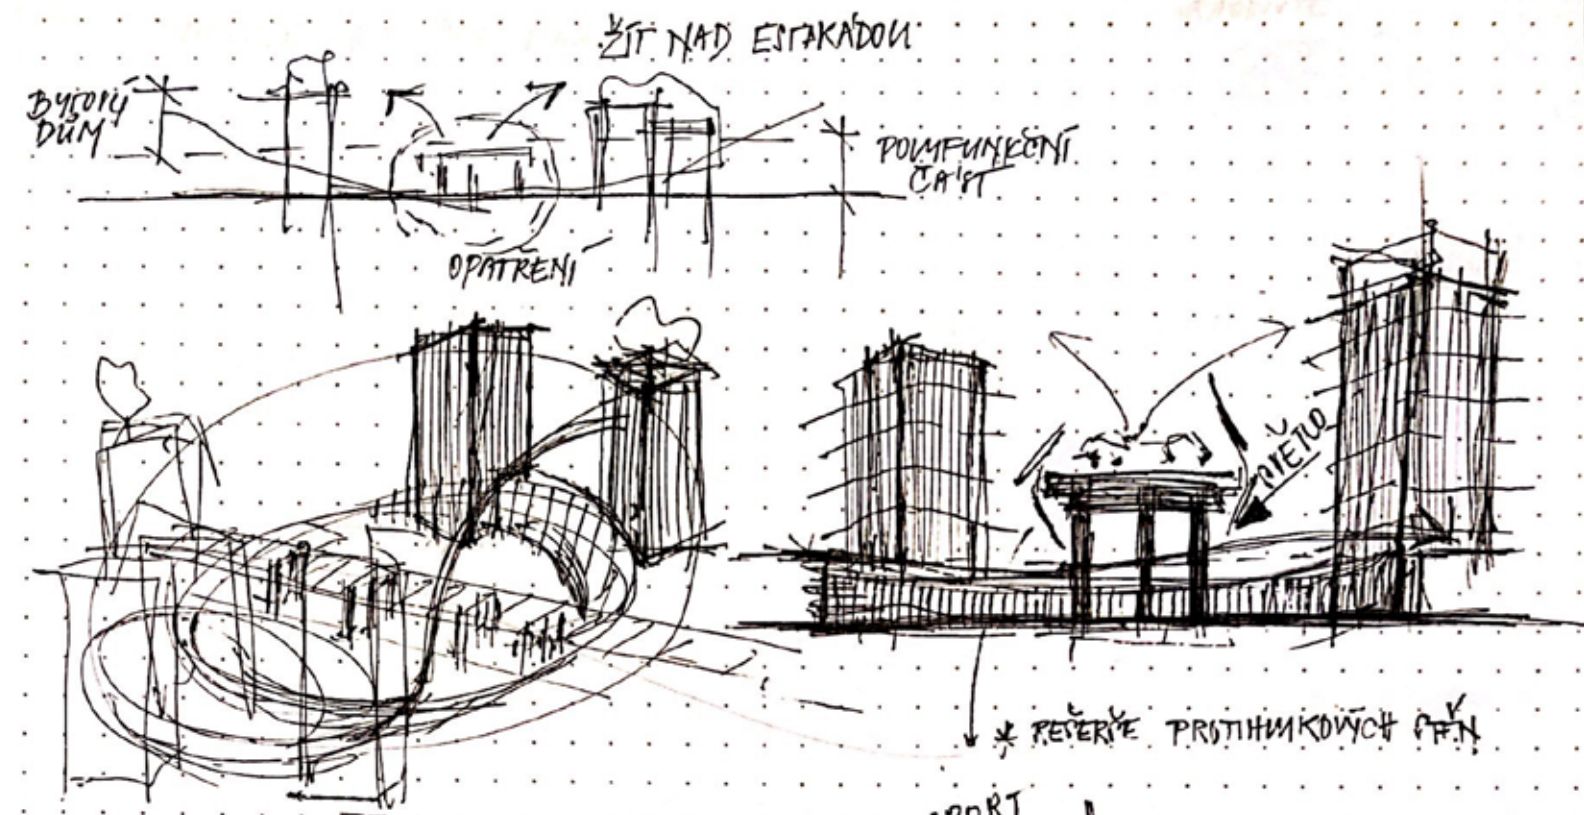 ŽÍT NAD ESTAKÁDOU
BYTOVÝ
DŮM
POLYFUNKČNÍ
ČÁST
OPATŘENÍ
SVĚTLO
* REŠERŠE PROTIHLUKOVÝCH STĚN
SPORT